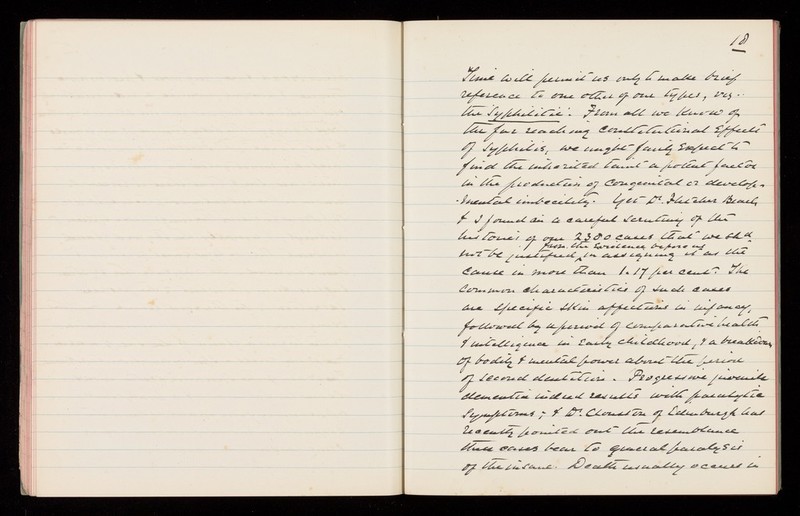 18
Time will permit us only to make brief
reference to one other of our types, viz:-
the Syphilitic. From all we know of
the far reaching constitutional effects
of Syphilis, we might fairly expect to
find the inherited taint a potent factor
in the production of congenital or develop-
-mental imbecility. Yet Dr. Fletcher Beach
& I found on a careful scrutiny of the
histories of our 2380 cases that we shd
from the evidence before us
not be justified in assigning it as the
cause in more than 1.17 per cent. The
common characteristics of such cases
are specific skin affections in infancy,
followed by a period of comparative health
& intelligence in early childhood, & a breakdown
of bodily & mental power about the period
of second dentition. Progressive juvenile
dementia indeed results with paralytic
symptoms; & Dr. Clouston of Edinburgh has
recently pointed out the resemblance
these cases bear to general paralysis
of the insane. Death usually occurs in